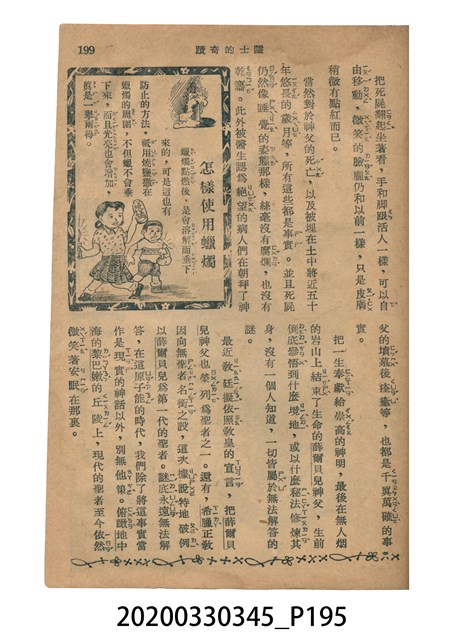 199
隱士的奇蹟
把死屍翻起坐著看,手和脚跟活人一樣,可以自
由移動,微笑的臉龐仍和以前一樣,只是皮膚
稍微有點紅而已。
當然對於神父的死亡,以及被埋在土中將近五十
年悠長的歲月等,所有這些都是事實。並且死屍
仍然像睡覺的姿態那樣,絲毫沒有腐爛,也沒有
乾癟。此外被醫生認爲絕望的病人們在朝拜了神
父的墳墓後痊癒等,也都是千真萬確的事
實。
把一生奉獻給崇高的神明,最後在無人烟
的岩山上結束了生命的薛爾貝兒神父,生前
倒底參悟到什麼境地,或以什麼秘法修煉其
身,沒有一個人知道,一切皆屬於無法解答的
謎。
最近教廷擬依照敎皇的宣言,把薛爾貝
兒神父也榮列爲聖者之一。還有,希臘正敎
因向無聖者名銜之設,這次據說特地破例
以薛爾貝兒爲第一代的聖者。謎底永遠無法解
答,在這原子能的時代,我們除了將這事實當
作是現實的神話以外,別無他策。俯瞰地中
海的黎巴嫩的丘陵上,現代的聖者至今依然
微笑著安眠在那裏。
怎樣使用蠟燭
蠟燭點燃後,是會溶解而垂下
來的,可是這也有
防止的方法。祇用燒鹽撒在
蠟燭的周圍,不但蠟不會垂
下來,而且光亮也會增加,
真是一擧兩得。
20200330345_P195